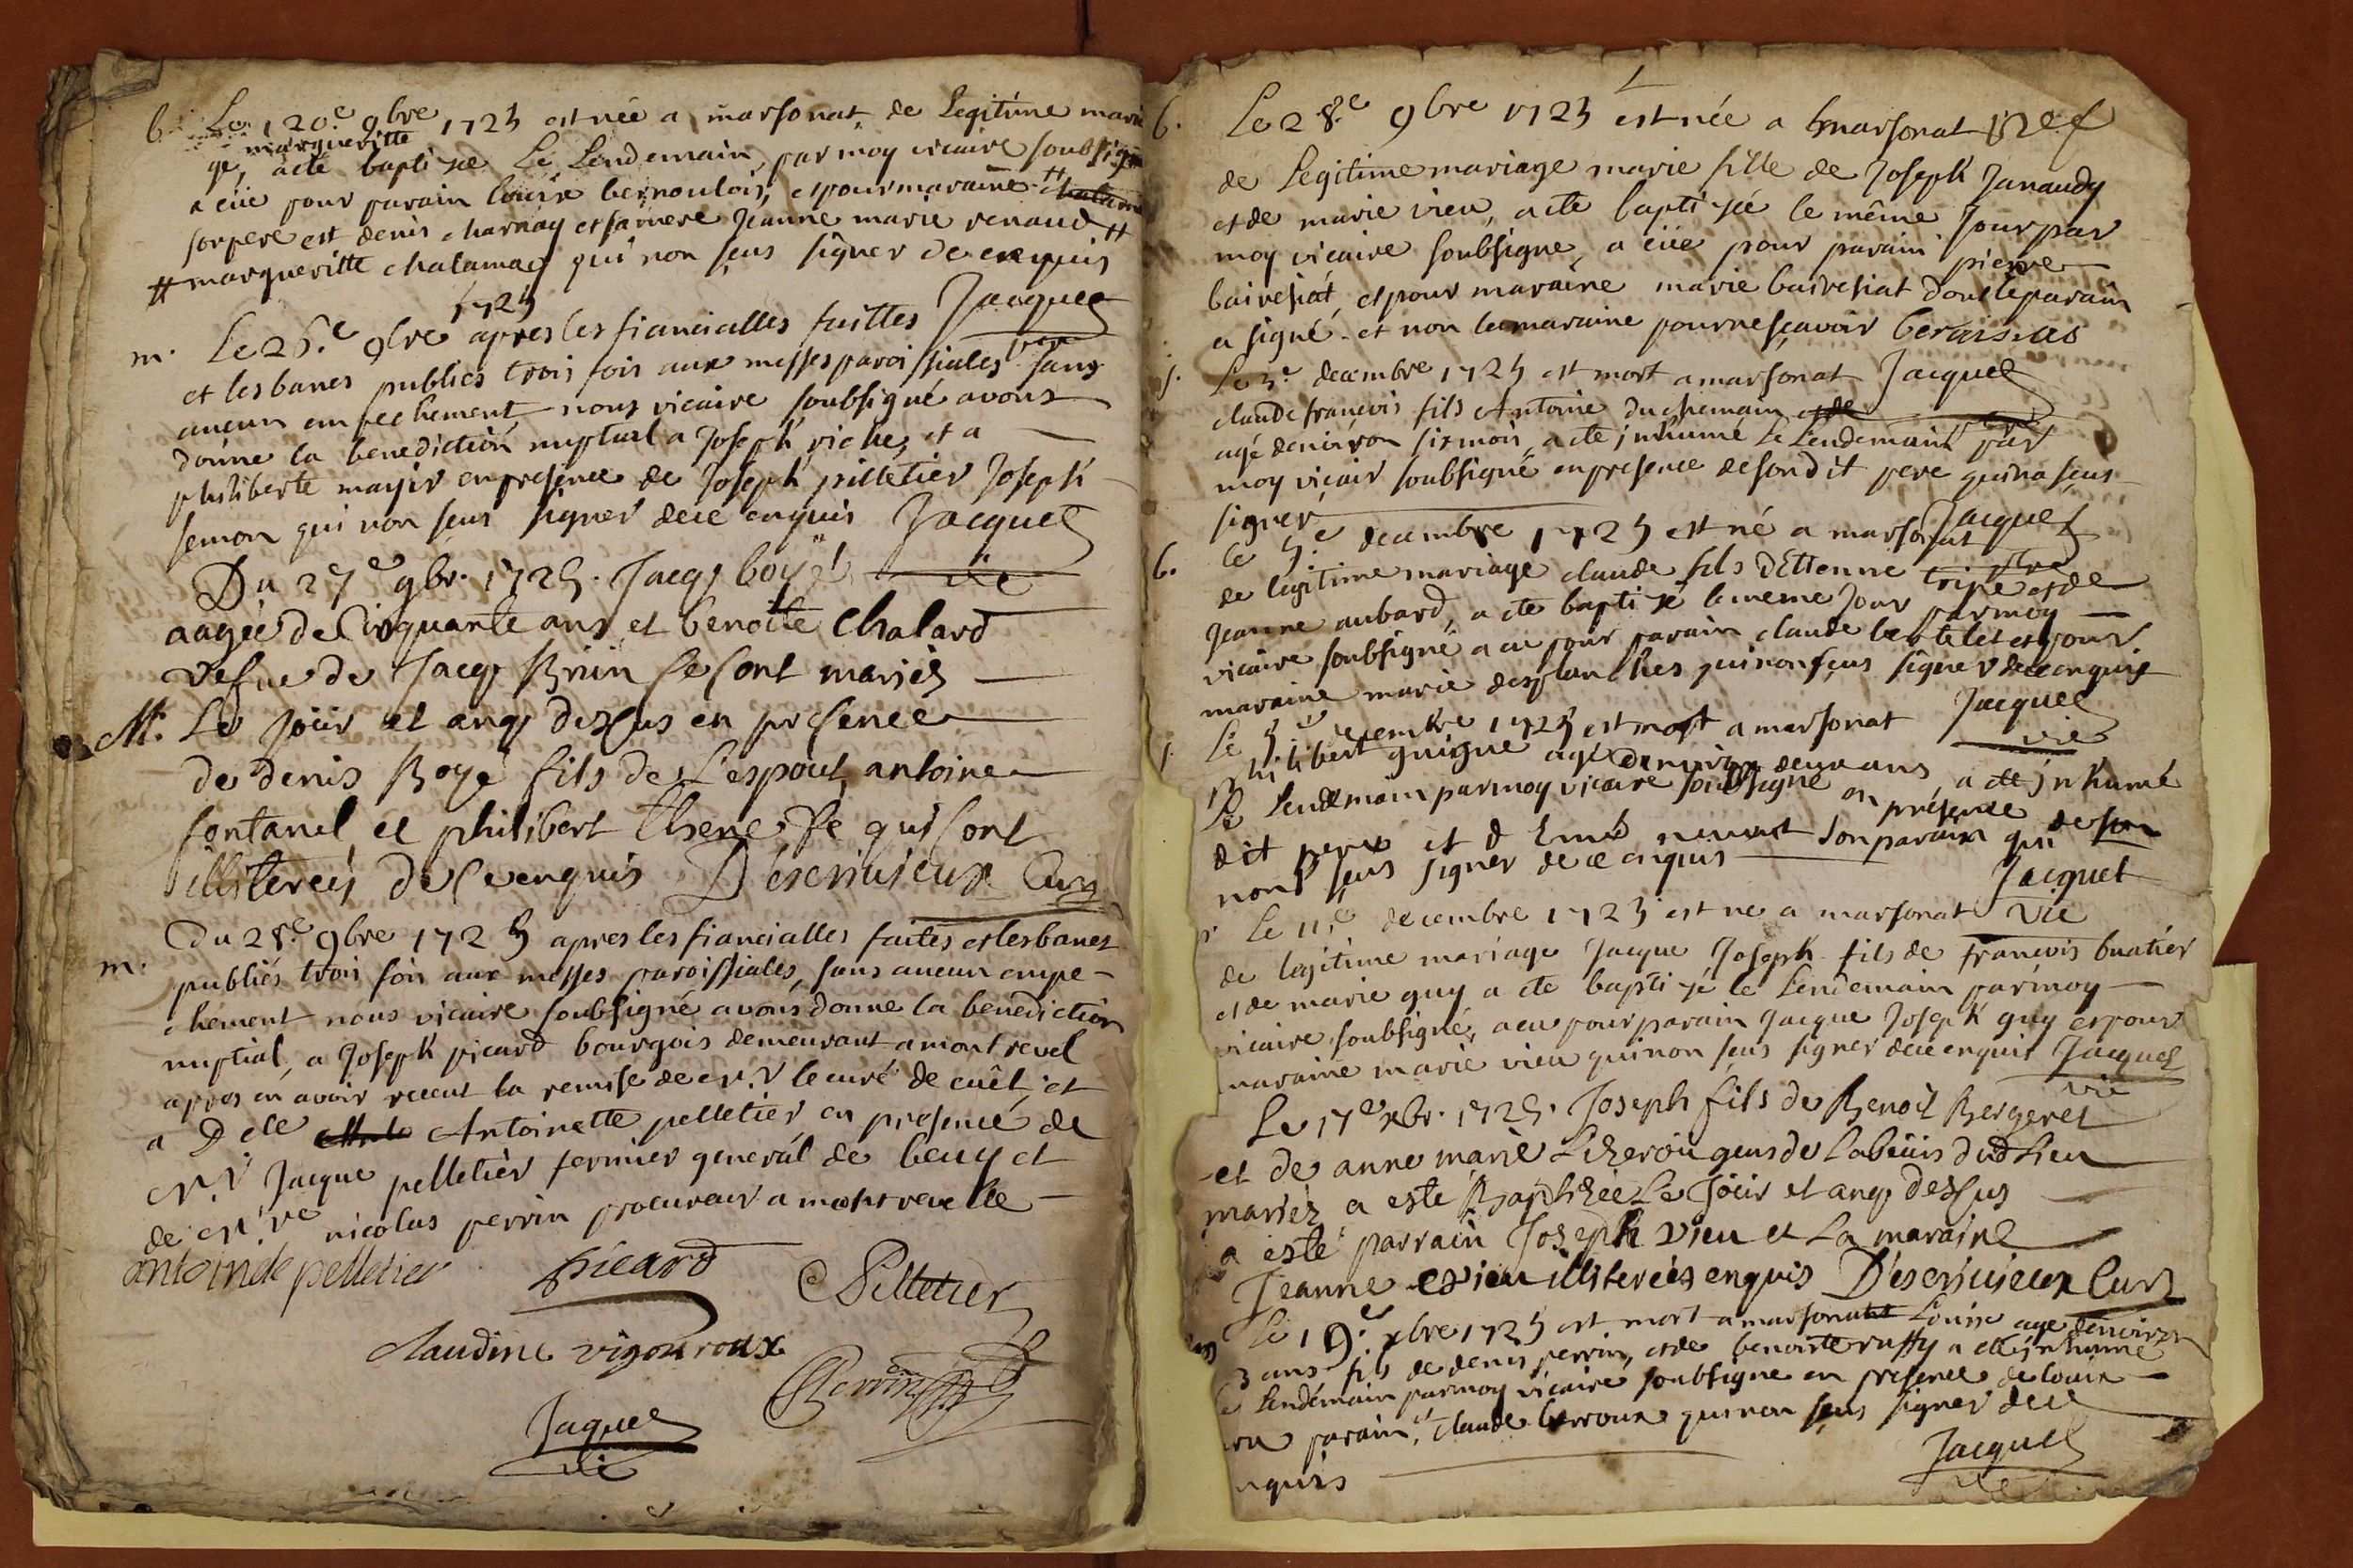 b. Le 20.e 9bre 1725 est née a marsonat de Legitime maria
margueritte
ge, a été baptisée Le Lendemain, par moy vicaire soubsigné
a eüe pour parain louise bernoulois, et pour maraine #
son pere est denis charnay et sa mere Jeanne marie renaud #
# margueritte chalamag qui non seus signer de ce enquis
Jacquet
vic
1725
m. Le 26.e 9bre apres les fiancialles faittes
et les bancs publies trois fois aux messes paroissiales sans
aucun empechement nous vicaire soubsigné avons
donne la benediction nuptial a Joseph riche, et a
philiberte en presence de Joseph pilletier Joseph
semon qui non seus signer de ce enquis Jacquet
vic
Du 27e 9br. 1725. Jacq boyé
aagée de Cinquante ans et benoitte Chalard
vefue de Jacq Brun se sont mariés
M. Le Joür et anq dessus en presence
de denis Boyé fils de L'espoux, antoine
fontanel et philibert qui sont
illiterées de ce enquis D'escriuieux Curé
m. Du 28.e 9bre 1725 apres les fiancialles faites, et les bancs
publiés trois fois aux messes paroissiales, sans aucun empe-
chement nous vicaire soubsigné avons donne la benediction
nuptial, a Joseph picard bourgois demeurant a montrevel
apres en avoir receut la remise de mr. le curé de cuêt, et
a Dele Antoinette pelletier en presence de
mr. Jacque pelletier fermier general de beuy et
de mr. nicolas perrin procureur a montrevelle
antoinete pelletier picard Pelletier
claudine vigouroux
Perrin
Jaquet
vic
b. Le 28.e 9bre 1725 est née a marsonat
de Legitime mariage marie fille de Joseph Janaudy
et de marie vieu, a été baptisée le même Jour par
moy vicaire soubsigne, a eüe pour parain pierre
bairesiat, et pour maraine marie bairesiat dont le parain
a signé et non la maraine pour ne sçavoir
s. Le 3e decembre 1725 est mort a marsonat Jacquet
claude francois fils Antoine duchemain
agé denviron six mois, a été inhumé Le Lendemain par
moy vicair soubsigné en presence de son dit pere qui na seus
signer
Jacquet
b. Le 5.e decembre 1725 est né a marsonat
de legitime mariage claude fils d'Ettienne tripe et de
Jeanne aubard, a été baptisé le meme Jour par moy
vicaire soubsigné a eu pour parain claude bertelet et pour
maraine marie desplanches qui non seus signer de ce enquis
Jacquet
vic
s. Le 5e decembre 1725 est mort a marsonat
philibert guigue agé denviron deux ans, a été inhumé
Le Lendemain par moy vicaire soubsigné en présence de son
dit pere et d son parain qui
nont seus signer de ce enquis
Jacquet
vic
Le 11.e decembre 1725 est ne a marsonat
de legitime mariage Jacque Joseph fils de francois buatier
et de marie guy a été baptisé le Lendemain par moy
vicaire soubsigné, a eu pour parain Jacque Joseph guy et pour
maraine marie vieu qui non seus signer de ce enquis Jacquet
vic
Le 17e xbr. 1725. Joseph fils de Benoit Bergeret
et de anne marie gens de Labeurs dud Lieu
mariés a esté Baptizée Le Joür et anq dessus
a esté parrain Joseph vieu et La maraine
Jeanne vieu illiterées enquis D'escriuieux Curé
Le 19.e xbre 1725 est mort a marsonat Louise age denviron
3 ans fils de denis perrin, et de benoitte ruffy a été inhumé
Lendemain par moy vicaire soubsigne en presence de louise
parain, et claude berroux qui non seus signer de ce
enquis
Jacquet
vic